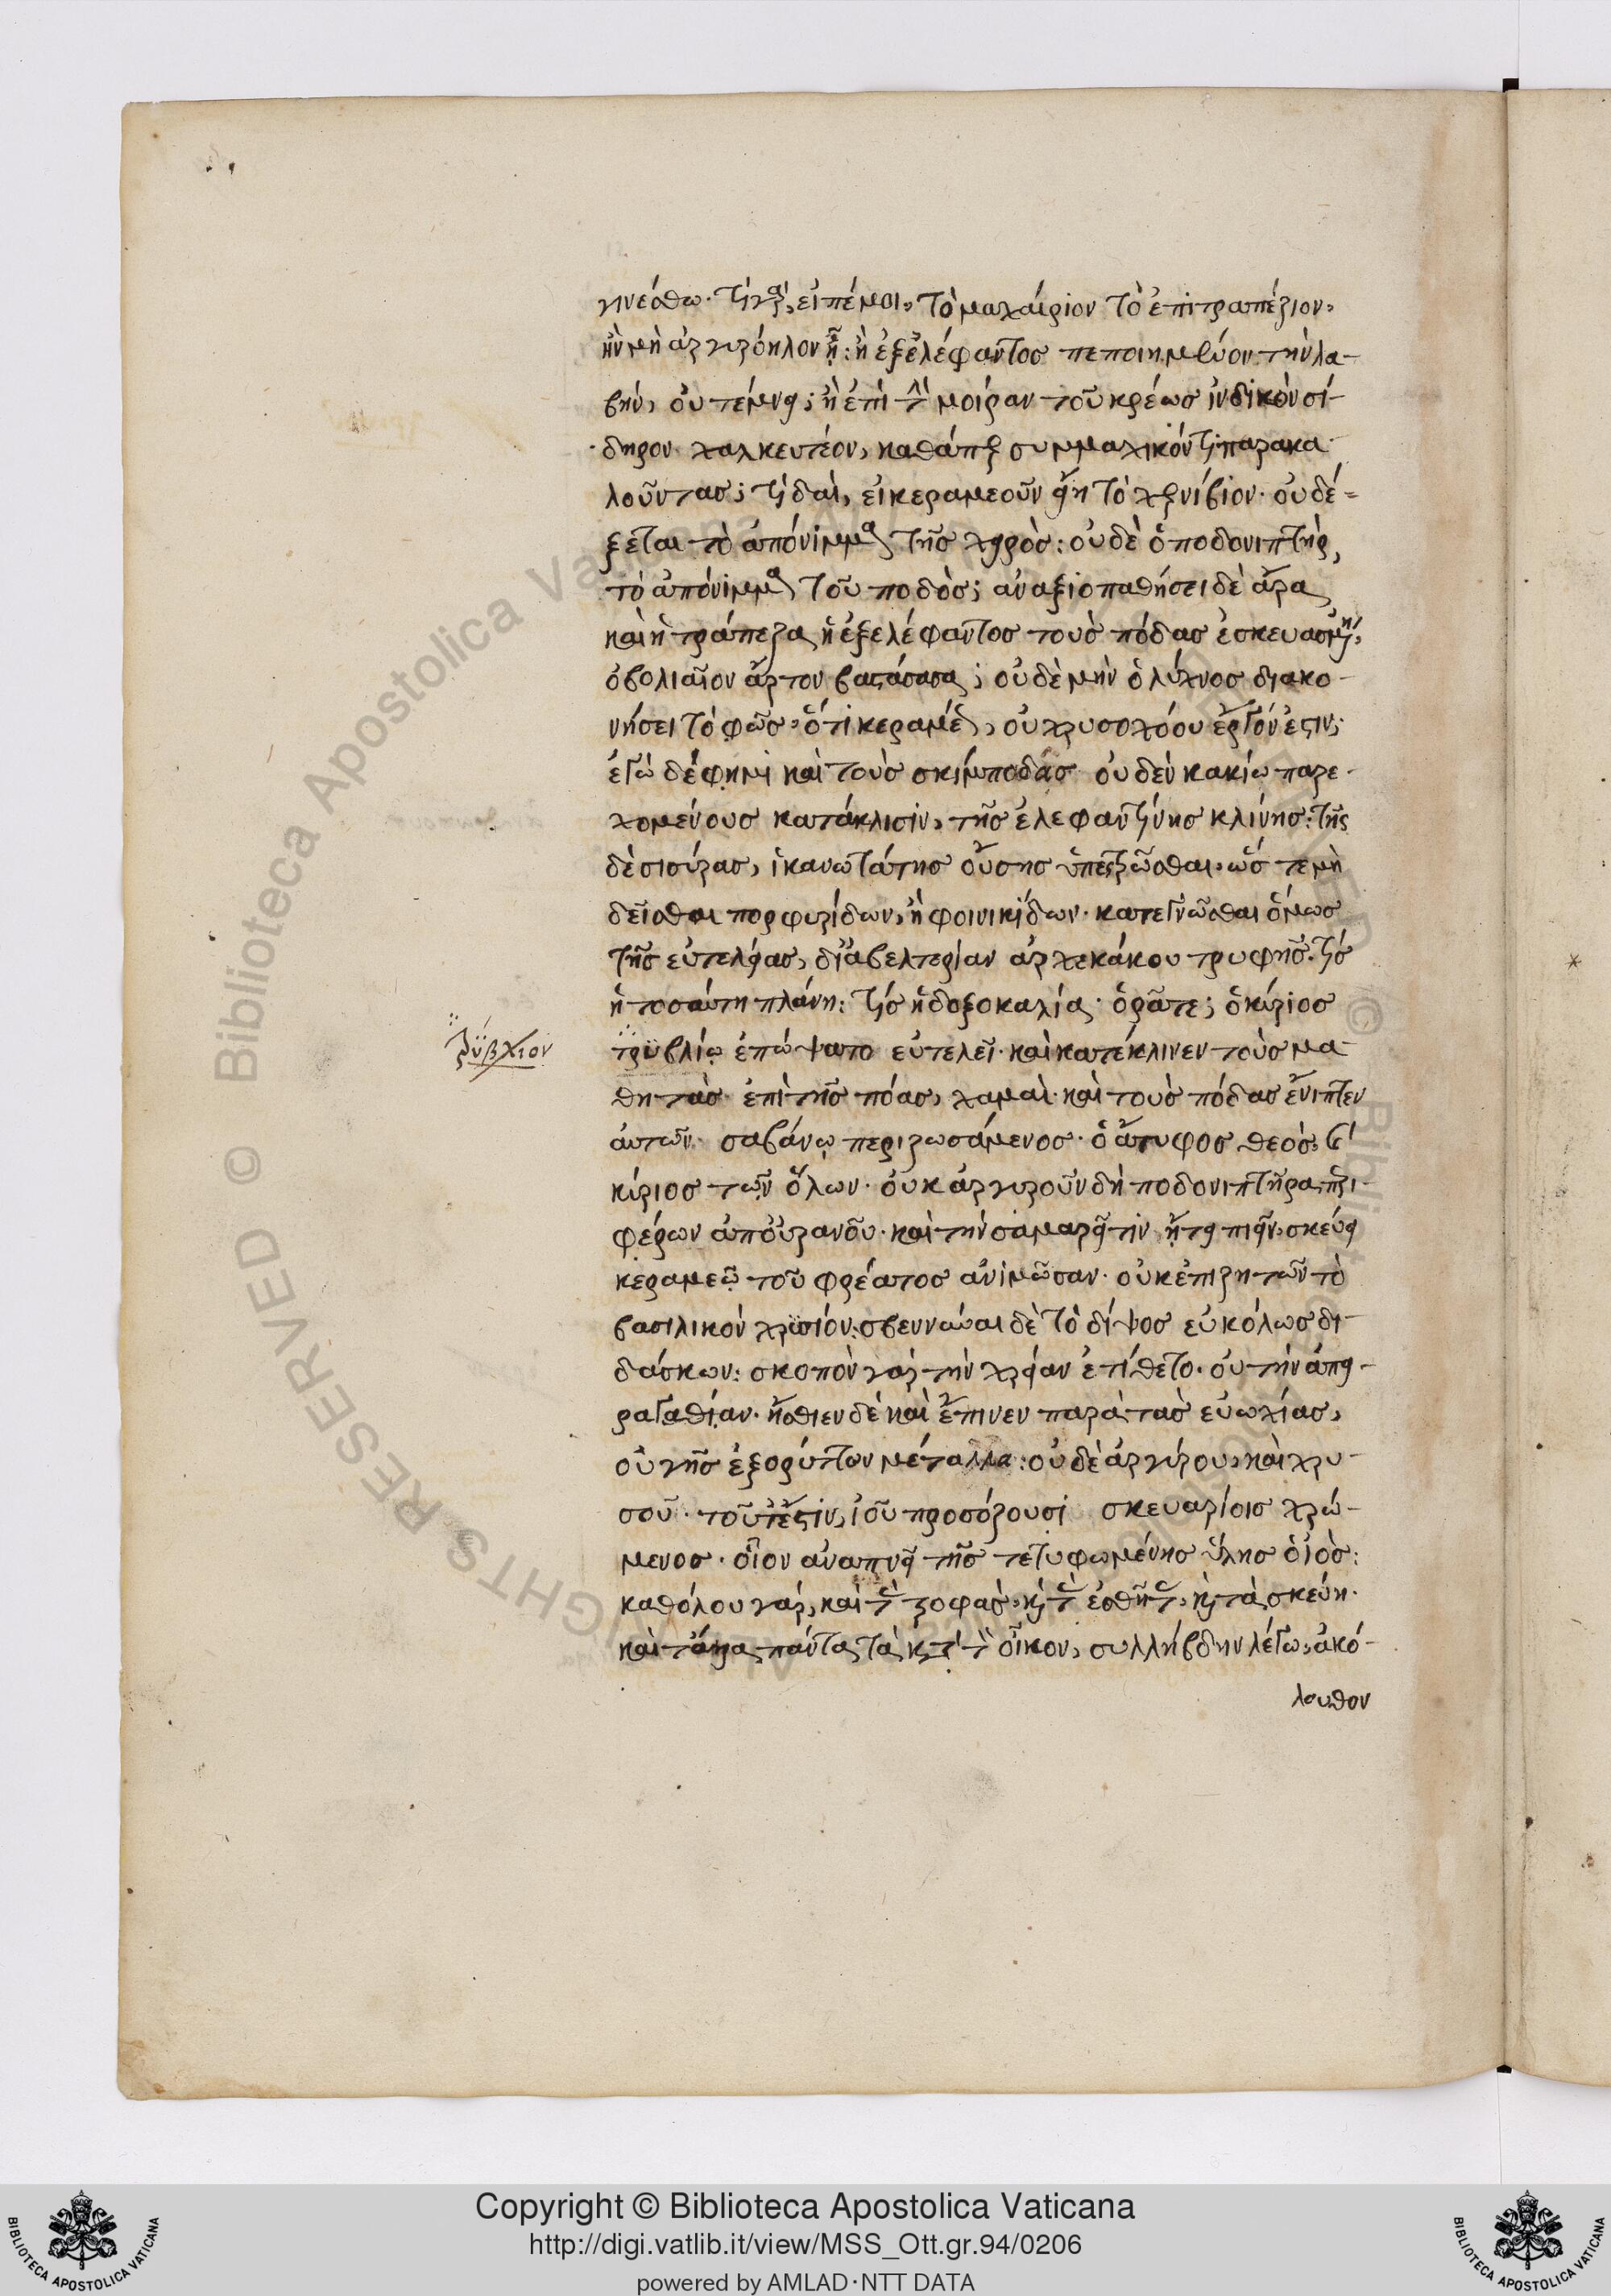 γινέσθω· τί γὰρ, εἰπέ μοι, τὸ μαχαίριον τὸ ἐπιτραπέζιον,
ἢν μὴ ἀργυρόηλον ᾖ: ἢ ἐξ ἐλέφαντος πεποιημένον τὴν λα-
βὴν, οὐ τέμνει; ἢ ἐπὶ τὴν μοίραν τοῦ κρέως ἰνδικὸν σί-
δηρον χαλκευτέον, καθάπερ συμμαχικόν τι παρακα-
λοῦντας; τί δαὶ, εἰ κεραμεοῦν εἴη τὸ χερνίβιον· οὐ δέ-
ξεται τὸ ἀπόνιμμα τῆς χειρὸς: οὐδὲ ὁ ποδονιπτὴρ,
τὸ ἀπόνιμμα τοῦ ποδὸς; ἀναξιοπαθήσει δὲ ἄρα
καὶ ἡ τράπεζα ἡ ἐξ ἐλέφαντος τοὺς πόδας ἐσκευασμένη,
ὀβολιαῖον ἄρτον βαστάσασα; οὐδὲ μὴν ὁ λύχνος διακο-
νήσει τὸ φῶς, ὅτι κεραμέως, οὐ χρυσοχόου ἔργον ἐστιν;
ἐγὼ δέ φημι καὶ τοὺς σκίμποδας οὐδὲν κακίω παρε-
χομένους κατάκλισιν, τῆς ἐλεφαντίνης κλίνης: τῆς
δὲ σισύρας, ἱκανωτάτης οὔσης ὑπεστρῶσθαι, ὥς τε μὴ
δεῖσθαι πορφυρίδων, ἢ φοινικίδων· κατεγνῶσθαι ὅμως
τῆς εὐτελείας, δι' ἀβελτερίαν ἀρχεκάκου τρυφῆς· τίς
ἡ τοσαύτη πλάνη: τίς ἡ δοξοκαλία· ὁρᾶτε; ὁ κύριος
τρυβλίῳ ἐπώψατο εὐτελεῖ· καὶ κατέκλινεν τοὺς μα-
τρύβλιον
θητὰς ἐπὶ τῆς πόας, χαμαὶ· καὶ τοὺς πόδας ἔνιπτεν
αὐτῶν· σαβάνῳ περιζωσάμενος· ὁ ἄτυφος θεὸς, καὶ
κύριος τῶν ὅλων· οὐκ ἀργυροῦν δὴ ποδονιπτῆρα περι-
φέρων ἀπ' οὐρανοῦ· καὶ τὴν σαμαρεῖτιν ᾔτει πιεῖν, σκεύει
κεραμεῷ τοῦ φρέατος ἀνιμῶσαν· οὐκ ἐπιζητῶν τὸ
βασιλικὸν χρυσίον: σβεννύναι δὲ τὸ δίψος εὐκόλως δι-
δάσκων: σκοπὸν γὰρ τὴν χρείαν ἐτίθετο· οὐ τὴν ἀπει-
ραγαθίαν· ἤσθιεν δὲ καὶ ἔπινεν παρὰ τὰς εὐωχίας,
οὐ γῆς ἐξορύττων μέταλλα: οὐδὲ ἀργύρου, καὶ χρυ-
σοῦ· τουτέστιν, ἰοῦ προσόζουσι σκευαρίοις χρώ-
μενος· οἷον ἀναπνεῖ τῆς τετυφωμένης ὕλης ὁ ἰὸς:
καθόλου γὰρ, καὶ τὰς τροφὰς, καὶ τὰς ἐσθῆτας, καὶ τὰ σκεύη·
καὶ τἄλλα πάντα τὰ κατὰ τὸν οἶκον, συλλήβδην λέγω, ἀκό-
λουθον